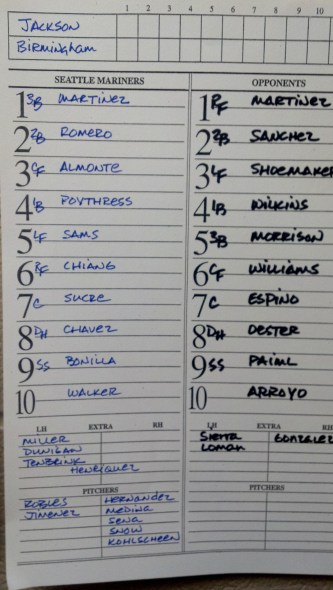 1 2 3 4 5 6 7 8 9 10
JACKSON
Birmingham
SEATTLE MARINERS OPPONENTS
1 3B MARTINEZ 1 RF MARTINEZ
2 2B ROMERO 2 2B SANCHEZ
3 CF ALMONTE 3 LF SHOEMAKER
4 1B POYTHRESS 4 1B WILKINS
5 LF SAMS 5 3B MORRISON
6 RF CHIANG 6 CF WILLIAMS
7 C SUCRE 7 C ESPINO
8 DH CHAVEZ 8 DH DESTER
9 SS BONILLA 9 SS PAIML
10 WALKER 10 ARROYO
LH EXTRA RH LH EXTRA RH
MILLER Sierra GONZALEZ
DUNIGAN Loman
TENBRINK
Henriquez
PITCHERS PITCHERS
ROBLES HERNANDEZ
JIMENEZ MEDINA
SENA
SNOW
KOHLSCHEEN